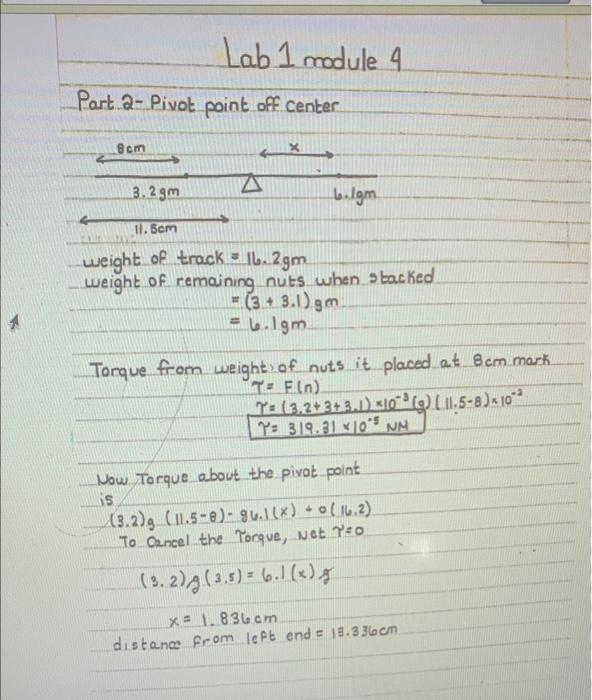 Lab 1 module 4
Part 2- Pivot point off center
8cm
x
3.2gm
6.1gm
11.5cm
weight of track = 16.2gm
weight of remaining nuts when stacked
= (3 + 3.1) gm
= 6.1gm
Torque from weight of nuts it placed at 8cm mark
τ = F(n)
τ = (3.2+3+3.1) ×10⁻³ (g) (11.5-8) × 10⁻²
τ = 319.31 × 10⁻⁵ NM
Now Torque about the pivot point
is
(3.2)g (11.5-8) - g6.1(x) + 0(16.2)
To Cancel the Torque, Net τ=0
(3.2)g(3.5) = 6.1(x)g
x = 1.836cm
distance from left end = 13.336cm